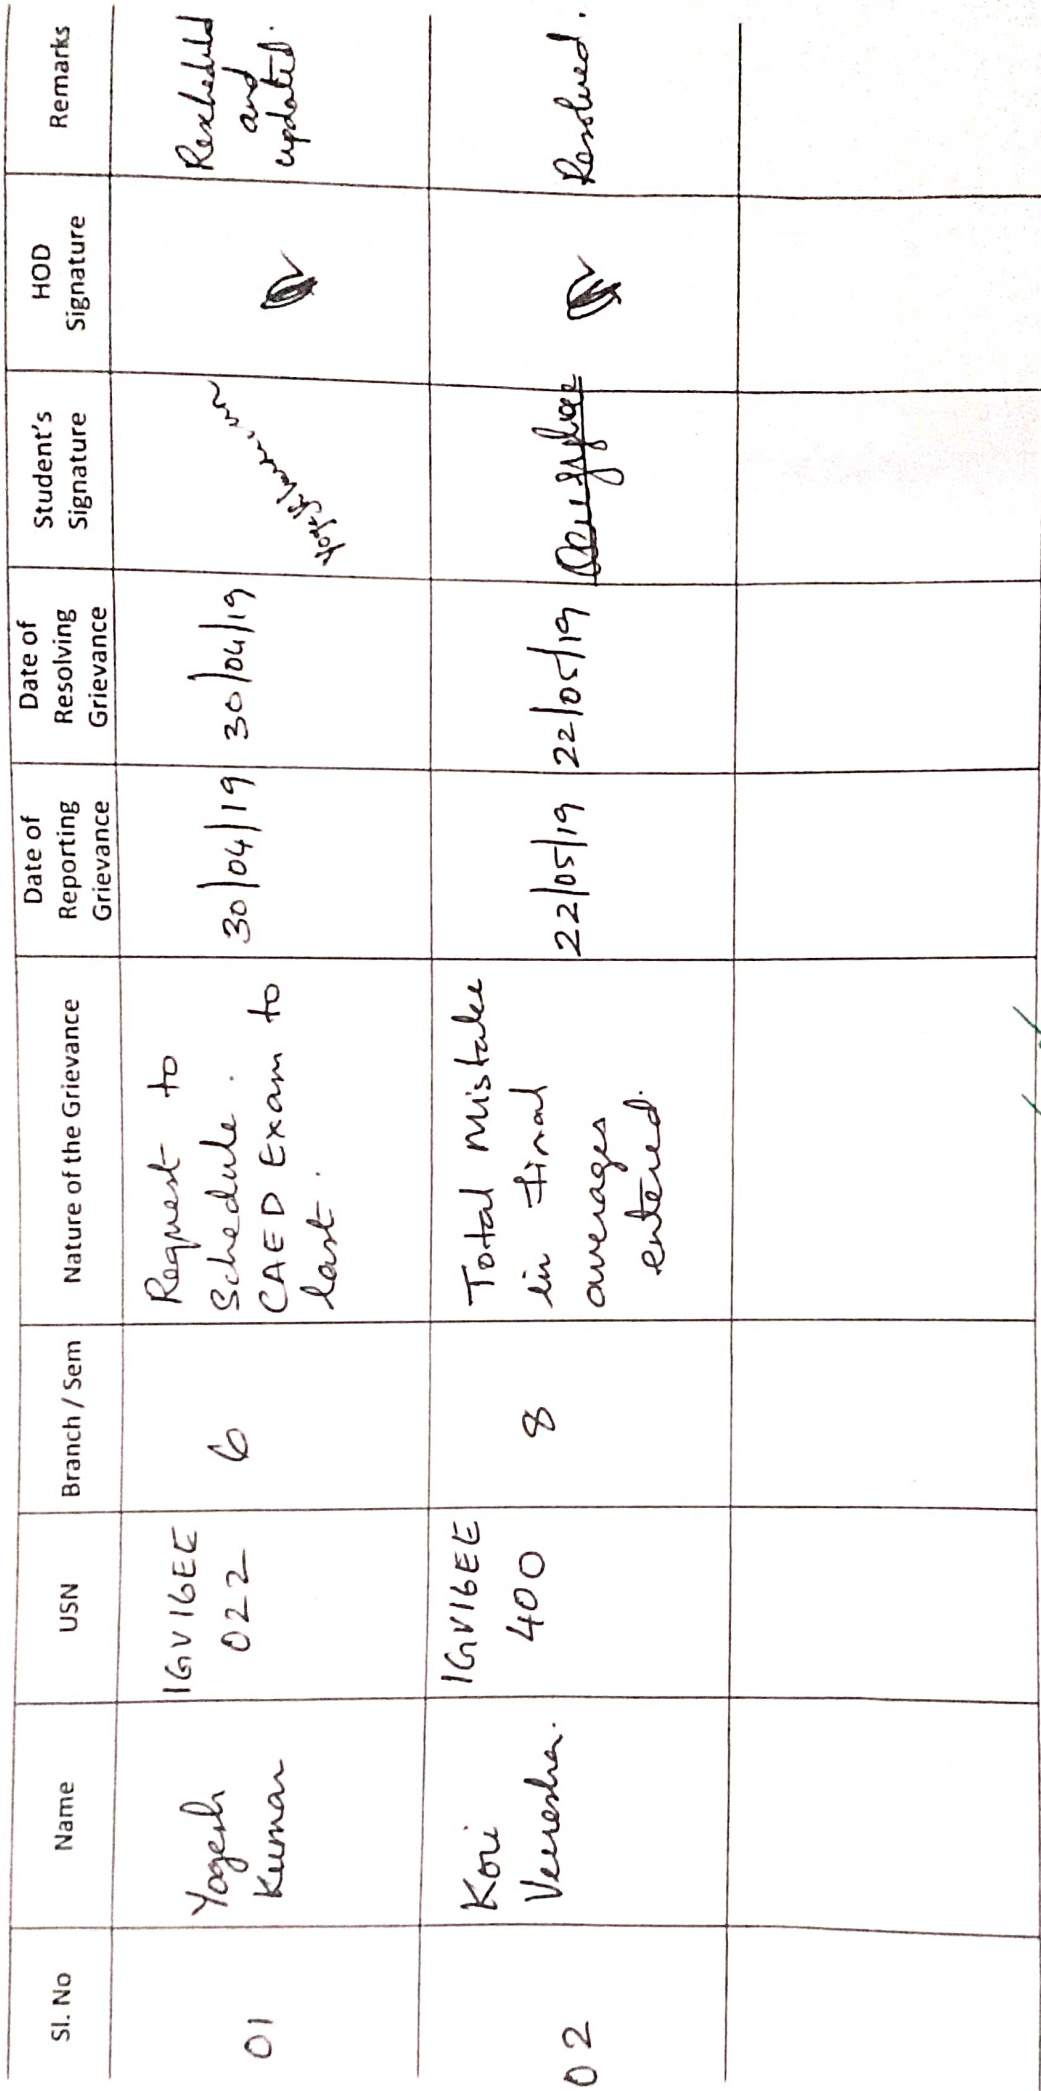 Sl. No
Name
USN
Branch / Sem
Nature of the Grievance
Date of
Reporting
Grievance
Date of
Resolving
Grievance
Student's
Signature
HOD
Signature
Remarks
01
Yogesh
Kumar
1GV16EE
022
6
Request to
Schedule.
CAED Exam to
last.
30/04/19
30/04/19
Rescheduld
and
updated.
02
Kori
Veeresha.
1GV16EE
400
8
Total Mistake
in final
averages
entered.
22/05/19
22/05/19
Resolved.